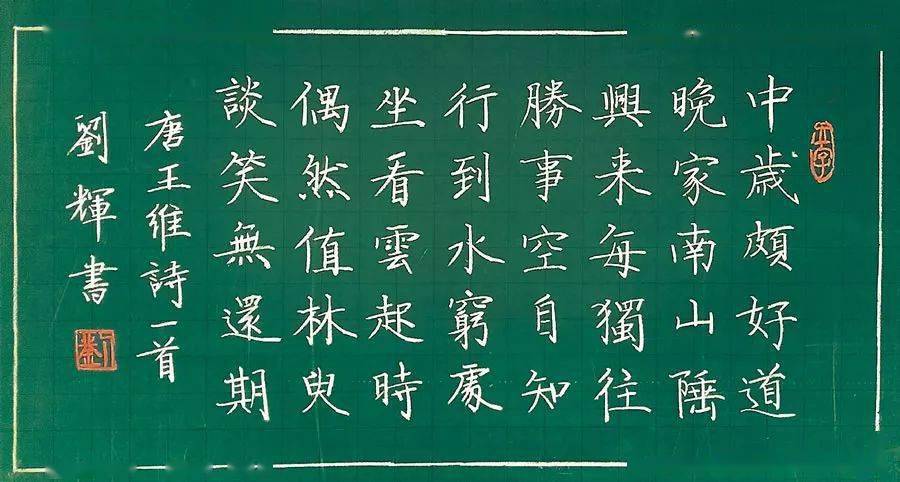 中歲頗好道
晚家南山陲
興来每獨往
勝事空自知
行到水窮處
坐看雲起時
偶然值林臾
談笑無還期
唐王維詩一首
劉輝書